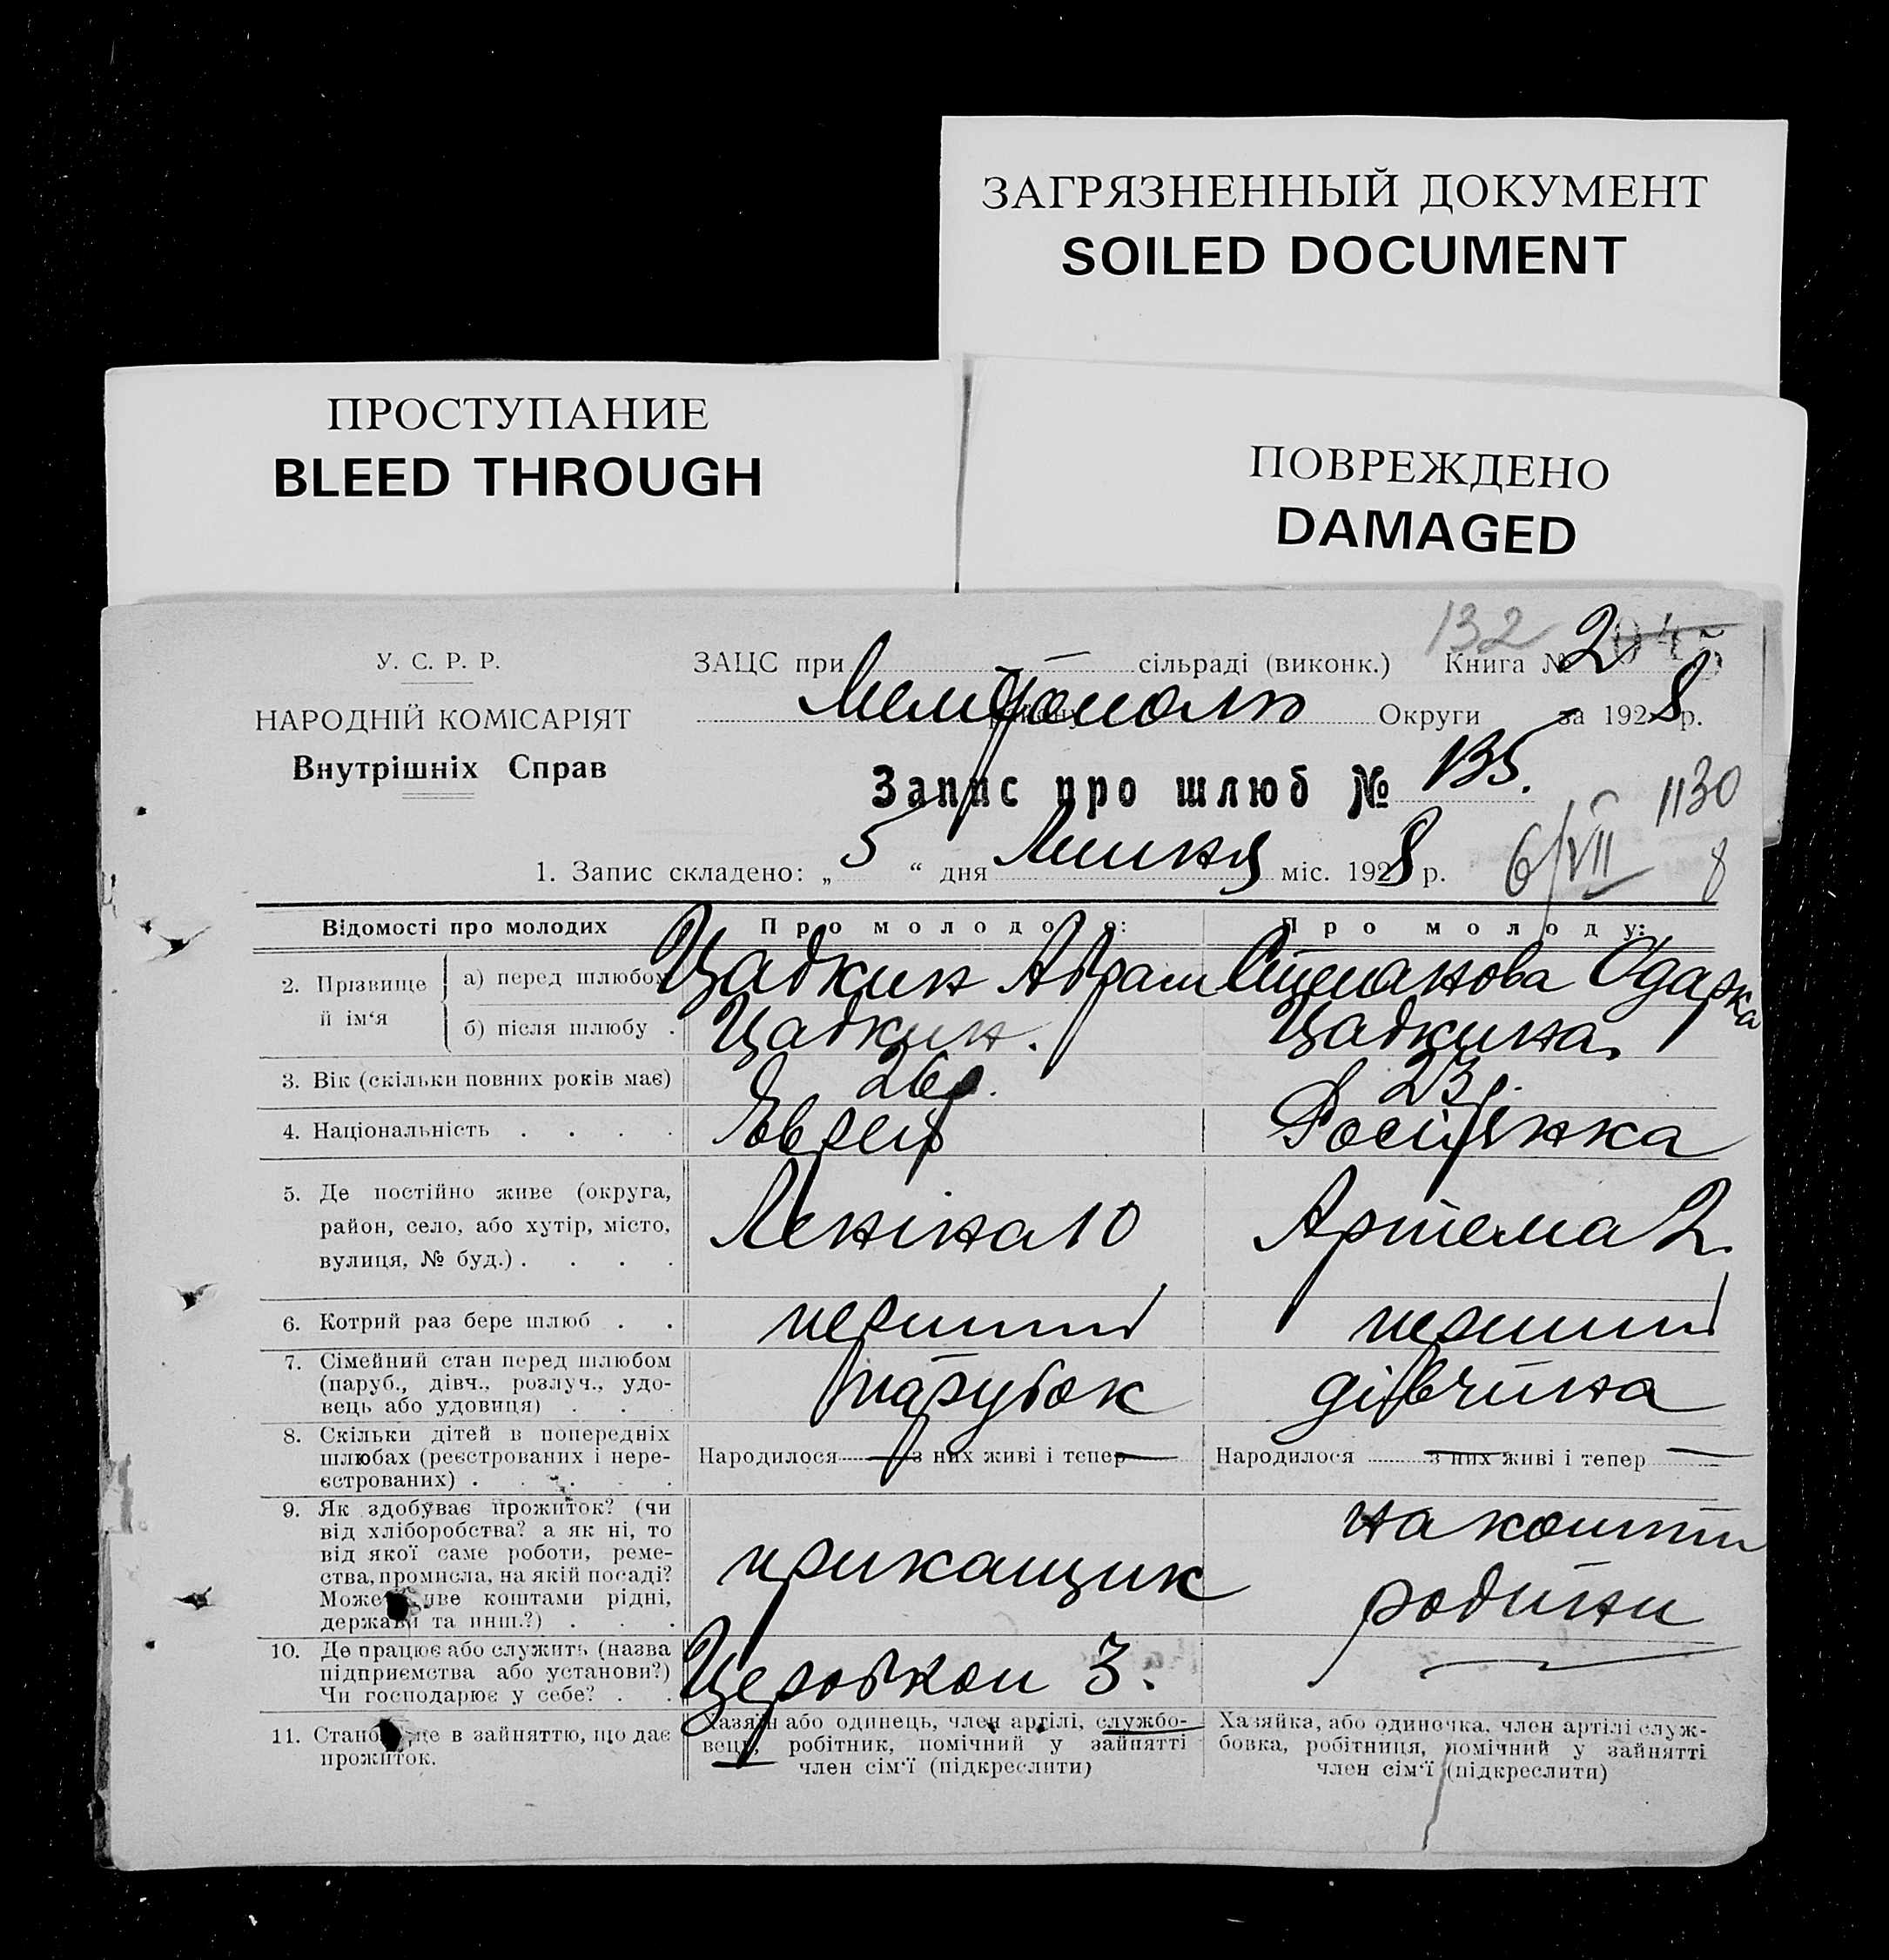 ЗАГРЯЗНЕННЫЙ ДОКУМЕНТ
SOILED DOCUMENT
ПРОСТУПАНИЕ
BLEED THROUGH
ПОВРЕЖДЕНО
DAMAGED
132
У. С. Р. Р.
ЗАЦС при сільраді (виконк.) Книга № 2
НАРОДНІЙ КОМІСАРІЯТ
Мелітополю Округи за 1928 р.
Внутрішніх Справ
Запис про шлюб № 135.
1130
1. Запис складено: „ 5 “ дня Липня міс. 1928 р.
6/VII 8
Відомості про молодих Про молодого: Про молоду:
2. Прізвище й ім‘я
а) перед шлюбом Цадкин Абрам Степанова Одарка
б) після шлюбу . Цадкин. Цадкина.
3. Вік (скільки повних років має) 26 р. 23 р.
4. Національність . . . . Єврей Росіянка
5. Де постійно живе (округа,
район, село, або хутір, місто,
вулиця, № буд.) . . . .
Леніна 10 Артема 2.
6. Котрий раз бере шлюб . . перший перший
7. Сімейний стан перед шлюбом
(паруб., дівч., розлуч., удо-
вець або удовиця) . . .
парубок дівчина
8. Скільки дітей в попередніх
шлюбах (реєстрованих і нере-
єстрованих) . . . . .
Народилося — з них живі і тепер — Народилося — з них живі і тепер —
9. Як здобуває прожиток? (чи
від хліборобства? а як ні, то
від якої саме роботи, реме-
ства, промисла, на якій посаді?
Може живе коштами рідні,
держави та инш.?) . . .
прикащик на кошти
родини
10. Де працює або служить (назва
підприємства або установи?)
Чи господарює у себе? . .
Церобкоп 3. —
11. Становище в зайняттю, що дає
прожиток.
Хазяїн або одинець, член артілі, службо-
вець, робітник, помічний у зайнятті
член сім‘ї (підкреслити)
Хазяйка, або одиночка, член артілі служ-
бовка, робітниця, помічний у зайнятті
член сім‘ї (підкреслити)